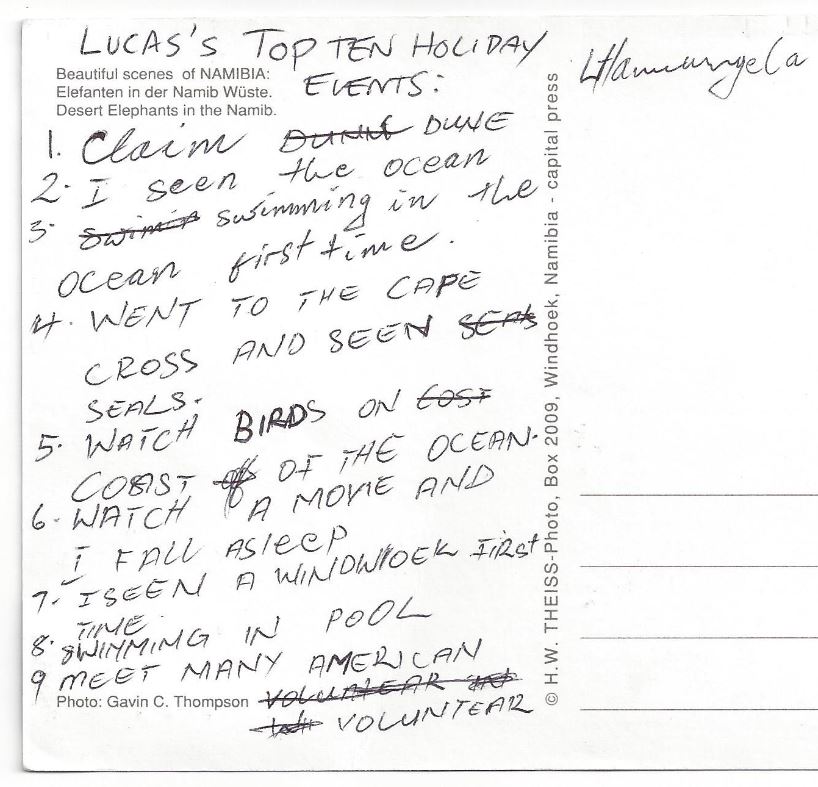 LUCAS'S TOP TEN HOLIDAY
EVENTS:
Beautiful scenes of NAMIBIA:
Elefanten in der Namib Wüste.
Desert Elephants in the Namib.
1. Claim DUNE
2. I seen the ocean
3. swimming in the
ocean first time.
4. WENT TO THE CAPE
CROSS AND SEEN SEALS
SEALS.
5. WATCH BIRDS ON COST
COAST OF THE OCEAN.
6. WATCH A MOVIE AND
I FALL ASleeP
7. I SEEN A WINDWHOEK FIRST
TIME
8. SWIMMING IN POOL
9 MEET MANY AMERICAN
VOLUNTEAR
VOLUNTEAR
Photo: Gavin C. Thompson
© H.W. THEISS-Photo, Box 2009, Windhoek, Namibia - capital press